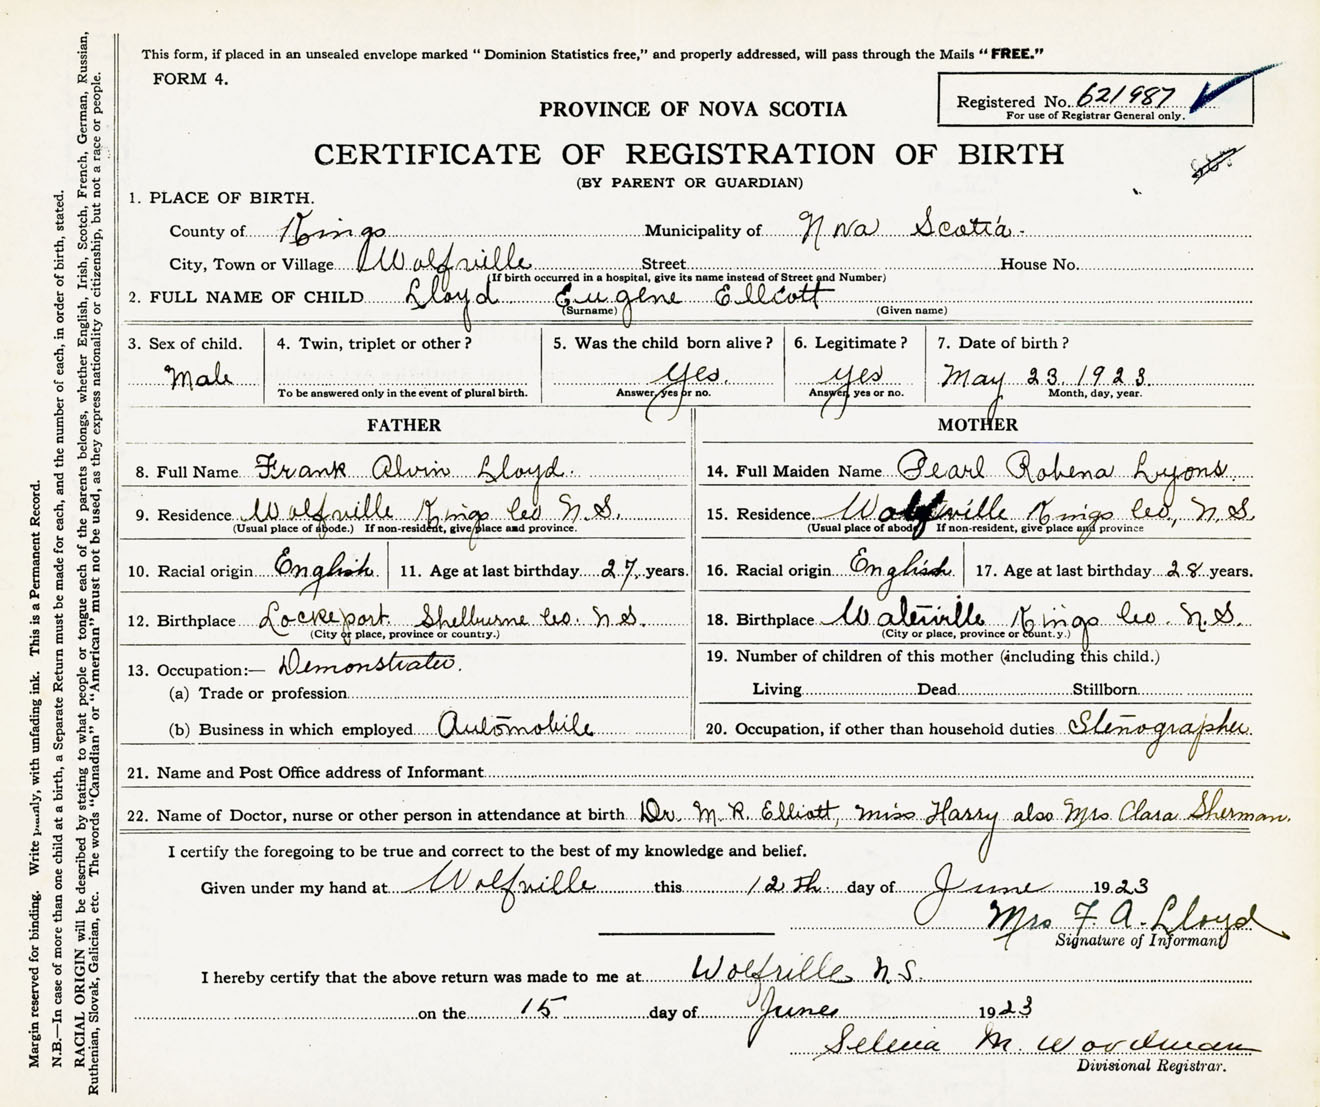 This form, if placed in an unsealed envelope marked "Dominion Statistics free," and properly addressed, will pass through the Mails "FREE."
FORM 4.
Registered No. 621987
For use of Registrar General only.
PROVINCE OF NOVA SCOTIA
CERTIFICATE OF REGISTRATION OF BIRTH
(BY PARENT OR GUARDIAN)
1. PLACE OF BIRTH.
County of Kings Municipality of Nova Scotia.
City, Town or Village Wolfville Street House No.
(If birth occurred in a hospital, give its name instead of Street and Number)
2. FULL NAME OF CHILD Lloyd Eugene Ellcott
(Surname) (Given name)
3. Sex of child. 4. Twin, triplet or other? 5. Was the child born alive? 6. Legitimate? 7. Date of birth?
Male Yes. yes May 23. 1923.
To be answered only in the event of plural birth. Answer, yes or no. Answer, yes or no. Month, day, year.
FATHER MOTHER
8. Full Name Frank Alvin Lloyd. 14. Full Maiden Name Pearl Robena Lyons
9. Residence Wolfville Kings Co N.S. 15. Residence Wolfville Kings Co, N.S.
(Usual place of abode.) If non-resident, give place and province. (Usual place of abode If non-resident, give place and province
10. Racial origin English 11. Age at last birthday 27 years. 16. Racial origin English 17. Age at last birthday 28 years.
12. Birthplace Lockeport Shelburne Co. N.S. 18. Birthplace Waterville Kings Co. N.S.
(City or place, province or country.) (City or place, province or count.y.)
13. Occupation:— Demonstrater. 19. Number of children of this mother (including this child.)
(a) Trade or profession Living Dead Stillborn
(b) Business in which employed Automobile 20. Occupation, if other than household duties Stenographer.
21. Name and Post Office address of Informant
22. Name of Doctor, nurse or other person in attendance at birth Dr. M. R. Elliott, miss Harry also Mrs Clara Sherman.
I certify the foregoing to be true and correct to the best of my knowledge and belief.
Given under my hand at Wolfville this 12th. day of June 1923
Mrs F. A. Lloyd
Signature of Informant
I hereby certify that the above return was made to me at Wolfville N.S.
on the 15 day of June 1923
Selena M. Woodman
Divisional Registrar.
Margin reserved for binding. Write plainly, with unfading ink. This is a Permanent Record.
N.B.—In case of more than one child at a birth, a Separate Return must be made for each, and the number of each, in order of birth, stated.
RACIAL ORIGIN will be described by stating to what people or tongue each of the parents belongs, whether English, Irish, Scotch, French, German, Russian,
Ruthenian, Slovak, Galician, etc. The words "Canadian" or "American" must not be used, as they express nationality or citizenship, but not a race or people.